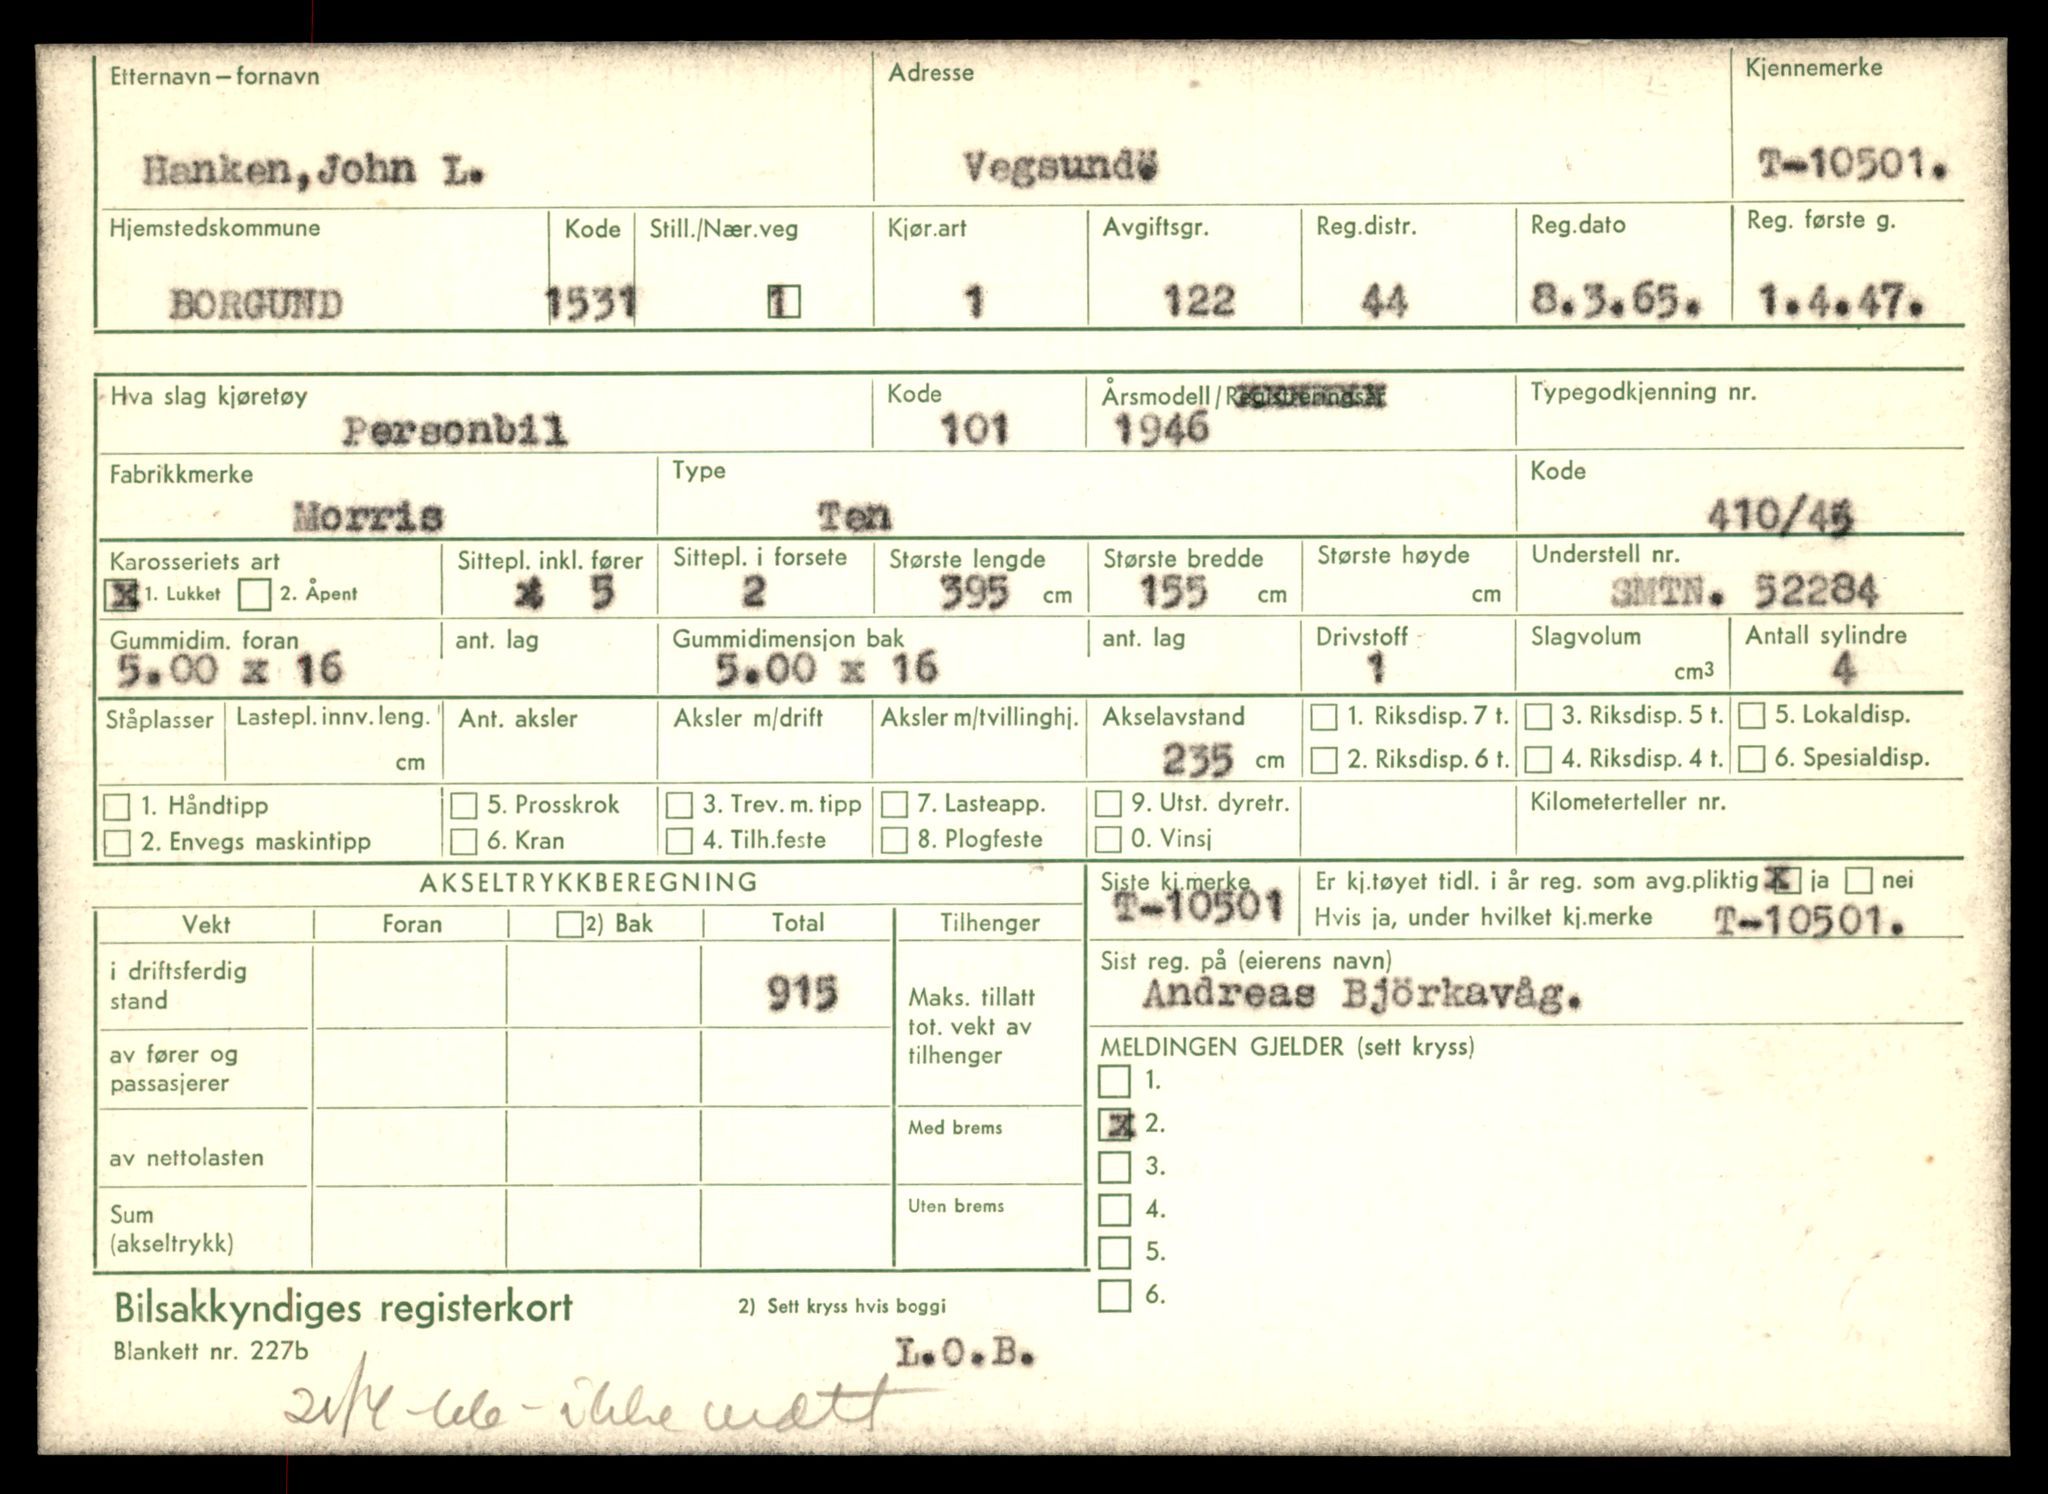 Etternavn – fornavn Adresse Kjennemerke
Hanken, John L. Vegsundö T-10501.
Hjemstedskommune Kode Still./Nær.veg Kjør.art Avgiftsgr. Reg.distr. Reg.dato Reg. første g.
BORGUND 1531 1 1 122 44 8.3.65. 1.4.47.
Hva slag kjøretøy Kode Årsmodell/Registreringsår Typegodkjenning nr.
Personbil 101 1946
Fabrikkmerke Type Kode
Morris Ten 410/45
Karosseriets art Sittepl. inkl. fører Sittepl. i forsete Største lengde Største bredde Største høyde Understell nr.
x 1. Lukket 2. Åpent 5 2 395 cm 155 cm cm SMTN. 52284
Gummidim. foran ant. lag Gummidimensjon bak ant. lag Drivstoff Slagvolum Antall sylindre
5.00 x 16 5.00 x 16 1 cm3 4
Ståplasser Lastepl. innv. leng. Ant. aksler Aksler m/drift Aksler m/tvillinghj. Akselavstand 1. Riksdisp. 7 t. 3. Riksdisp. 5 t. 5. Lokaldisp.
cm 235 cm 2. Riksdisp. 6 t. 4. Riksdisp. 4 t. 6. Spesialdisp.
1. Håndtipp 5. Prosskrok 3. Trev. m. tipp 7. Lasteapp. 9. Utst. dyretr. Kilometerteller nr.
2. Envegs maskintipp 6. Kran 4. Tilh.feste 8. Plogfeste 0. Vinsj
AKSELTRYKKBEREGNING Siste kj.merke Er kj.tøyet tidl. i år reg. som avg.pliktig x ja nei
T-10501
Vekt Foran 2) Bak Total Tilhenger Hvis ja, under hvilket kj.merke T-10501.
i driftsferdig Sist reg. på (eierens navn)
stand 915 Maks. tillatt Andreas Björkavåg.
tot. vekt av
av fører og tilhenger MELDINGEN GJELDER (sett kryss)
passasjerer 1.
Med brems x 2.
av nettolasten 3.
Sum Uten brems 4.
(akseltrykk) 5.
Bilsakkyndiges registerkort 2) Sett kryss hvis boggi 6.
Blankett nr. 227b L.O.B.
21/4-66 - ikke møtt